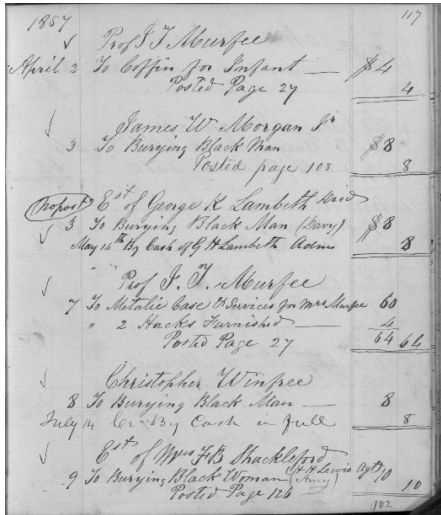 1857 117
Prof J T Murfee
April 2 To Coffin for Infant — $4
Posted Page 27 4
James W Morgan Jr
3 To Burying Black Man $8
Posted page 108 8
(No post) Est of George K Lambeth Decd
3 To Burying Black Man (Davy) $8
May 14th By Cash of G H Lambeth Adms 8
Prof J. T. Murfee
7 To Metalic Case & Services for Mrs Murfee 60
" 2 Hacks Furnished — 4
Posted Page 27 64 64
Christopher Winfree
8 To Burying Black Man — 8
July 14 Cr By Cash in full 8
Est of Mrs F B Shackleford
9 To Burying Black Woman (Amy) (H H Lewis Agt) 10
Posted Page 126 10
102